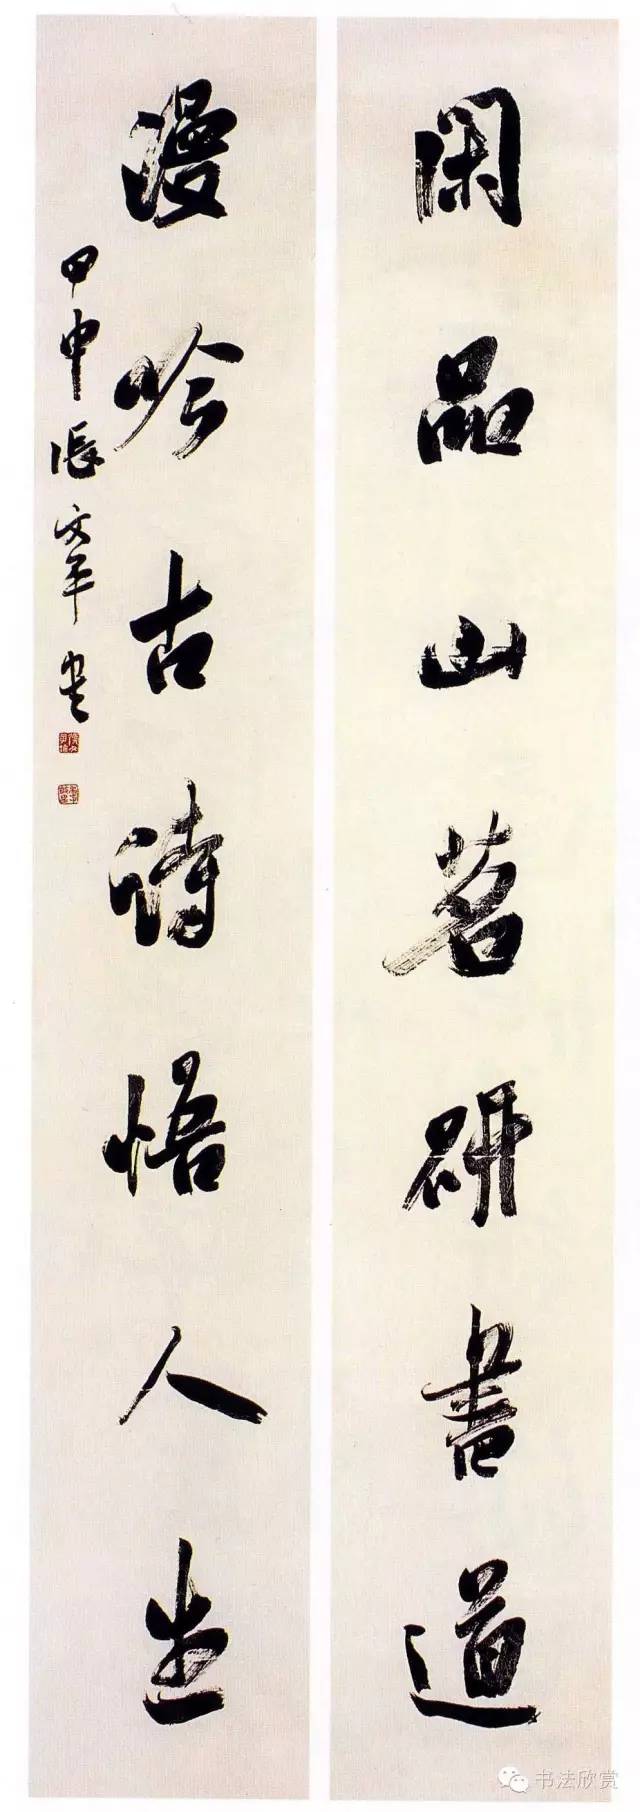 閑品山茗研書道
漫吟古詩悟人生
甲申張文平书
书法欣赏